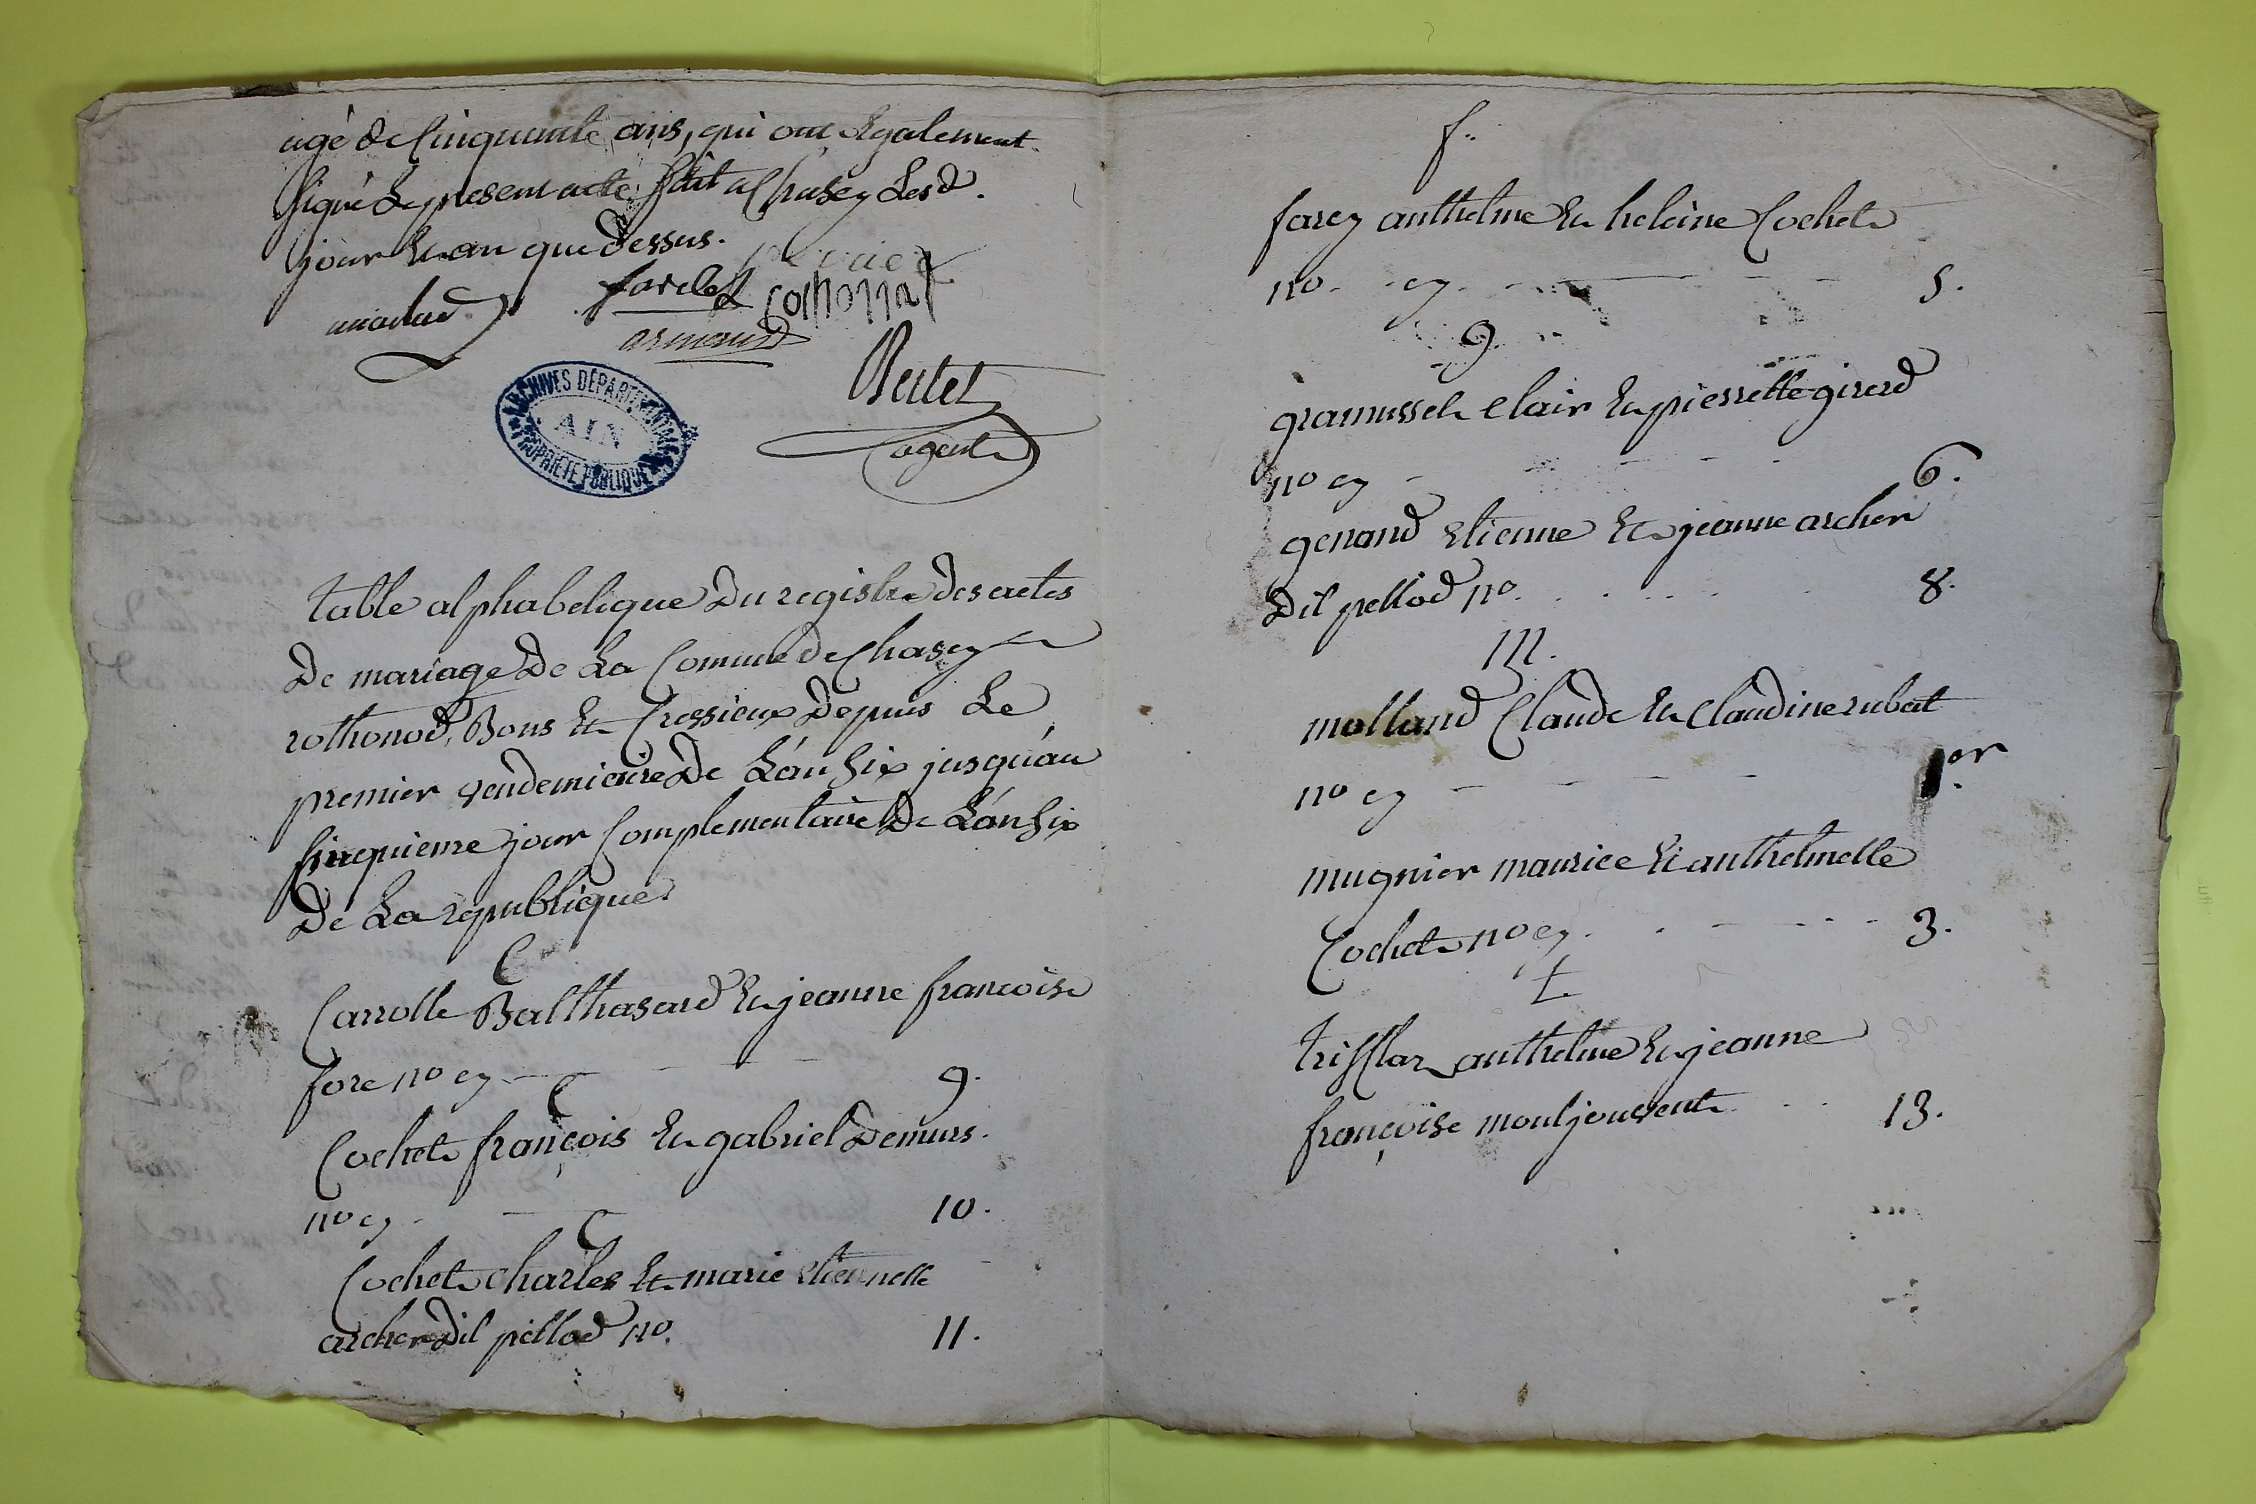 agé de Cinquante ans, qui ont Egalement
signé Le present acte fait a Chasey Lesd.
jour Et an que Dessus.
farclet
cothonnat
armand
ARCHIVES DÉPARTEMENTALES
AIN
PROPRIÉTÉ PUBLIQUE
Bertet
agent
table alphabetique Du registre Des actes
De mariage De La Commune de Chasey
rothonod, Bons Et Cressieux Depuis Le
premier vendemiaire De L'an Six jusqu'au
Cinquieme jour Complementaire De L'an Six
De La republique
C
Carrolle Balthasard Et jeanne francoise
fore no cy 9.
C
Cochet françois Et gabriel Demurs.
no cy 10.
C
Cochet charles Et marie Etiennette
archer Dit pellod no. 11.
f.
farcy anthelme Et heleine Cochet
no. cy. 5.
g
gramussel Clair Et pierrette girerd
no cy 6.
genand Etienne Et jeanne archer
Dit pellod no. 8.
m.
molland Claude Et Claudine rubat
no cy 1er.
mugnier maurice Et anthelmette
Cochet no cy. 3.
t
anthelme Et jeanne
françoise montjouvent 13.